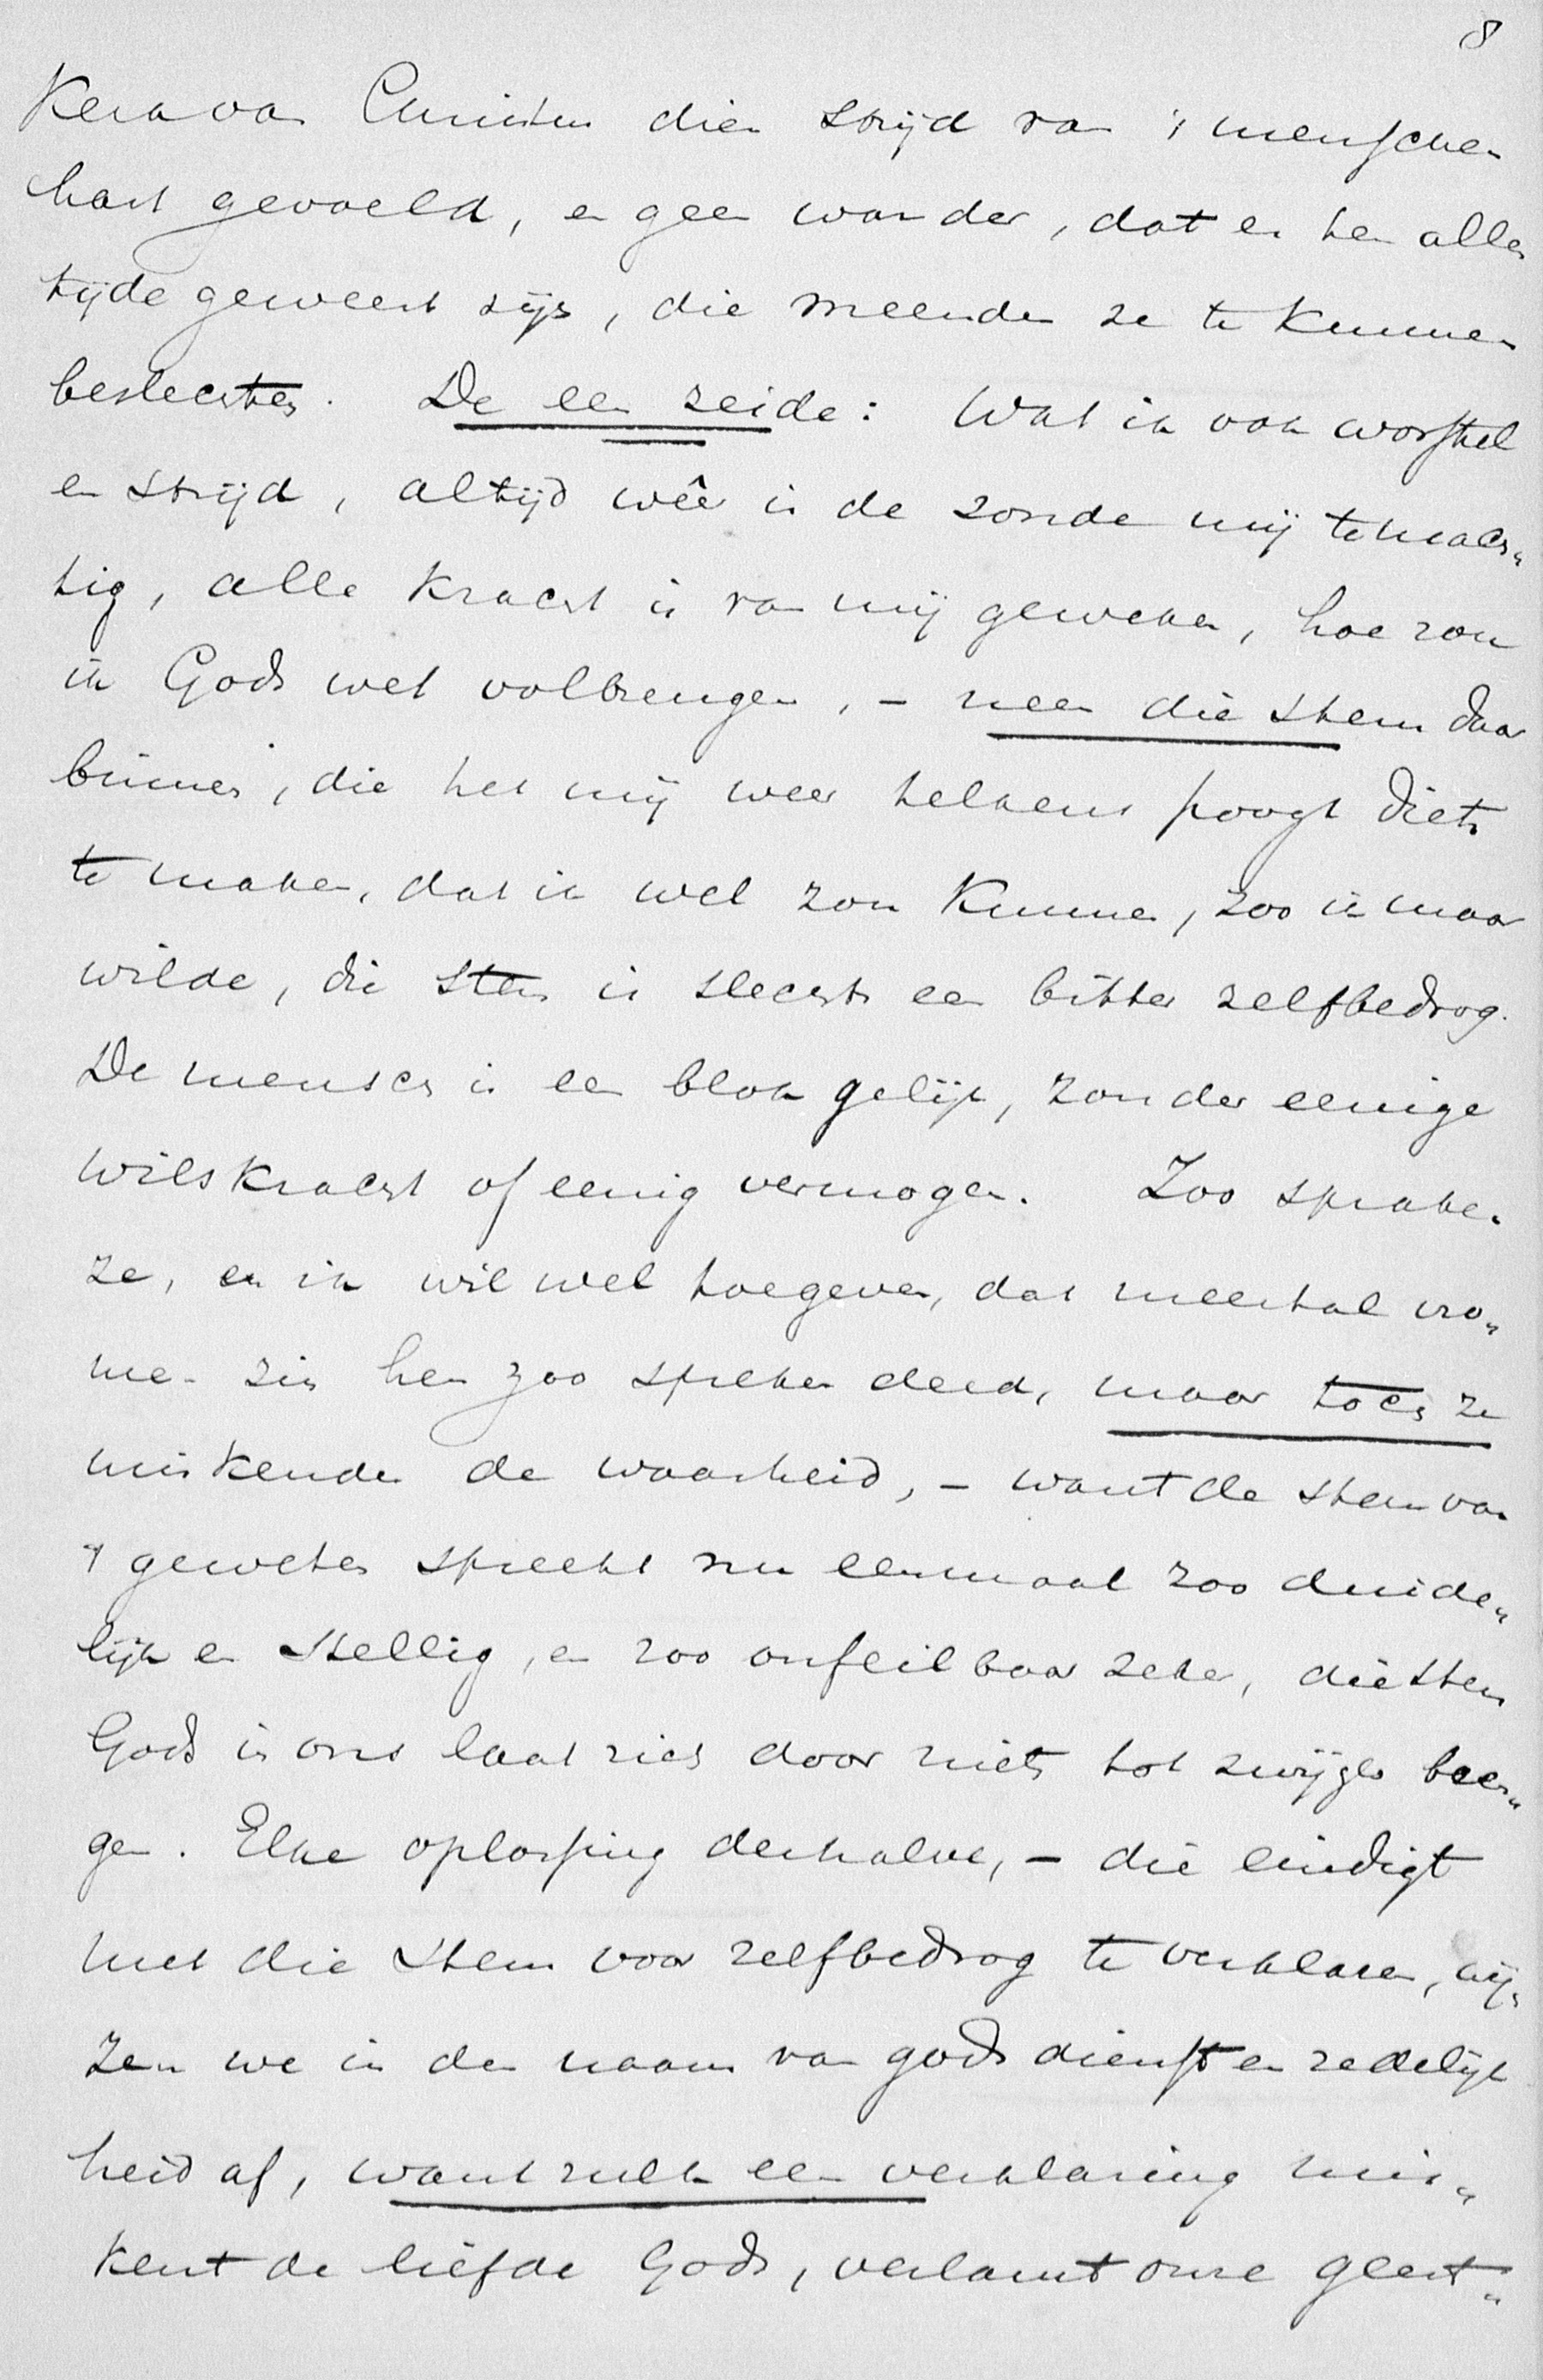 8
Kerk van Christus dien strijd van 's menschen
hart gevoeld, en geen wonder, dat er ten allen
tijde geweest zijn, die meenden ze te kunnen
beslechten. De een zeide: Wat ik ook worstel
en strijd, altijd wêer is de zonde mij te mach„
tig, alle kracht is van mij geweken, hoe zou
ik Gods wet volbrengen, – neen die stem daar
binnen, die het mij weer telkens poogt diets
te maken, dat ik wel zou kunnen, zoo ik maar
wilde, die stem is slechts een bitter zelfbedrog.
De mensch is een blok gelijk, zonder eenige
wilskracht of eenig vermogen. Zoo spraken
ze, en ik wil wel toegeven, dat meestal vro„
me zin hen zoo spreken deed, maar toch ze
miskenden de waarheid, – want de stem van
't geweten spreekt nu eenmaal zoo duide„
lijk en stellig, en zoo onfeilbaar zeker, die stem
Gods in ons laat zich door niets tot zwijgen bren„
gen. Elke oplossing derhalve, – die eindigt
met die stem voor zelfbedrog te verklaren, wij„
zen we in den naam van godsdienst en zedelijk
heid af, want zulk een verklaring mis„
kent de liefde Gods, verlamt onze geest„